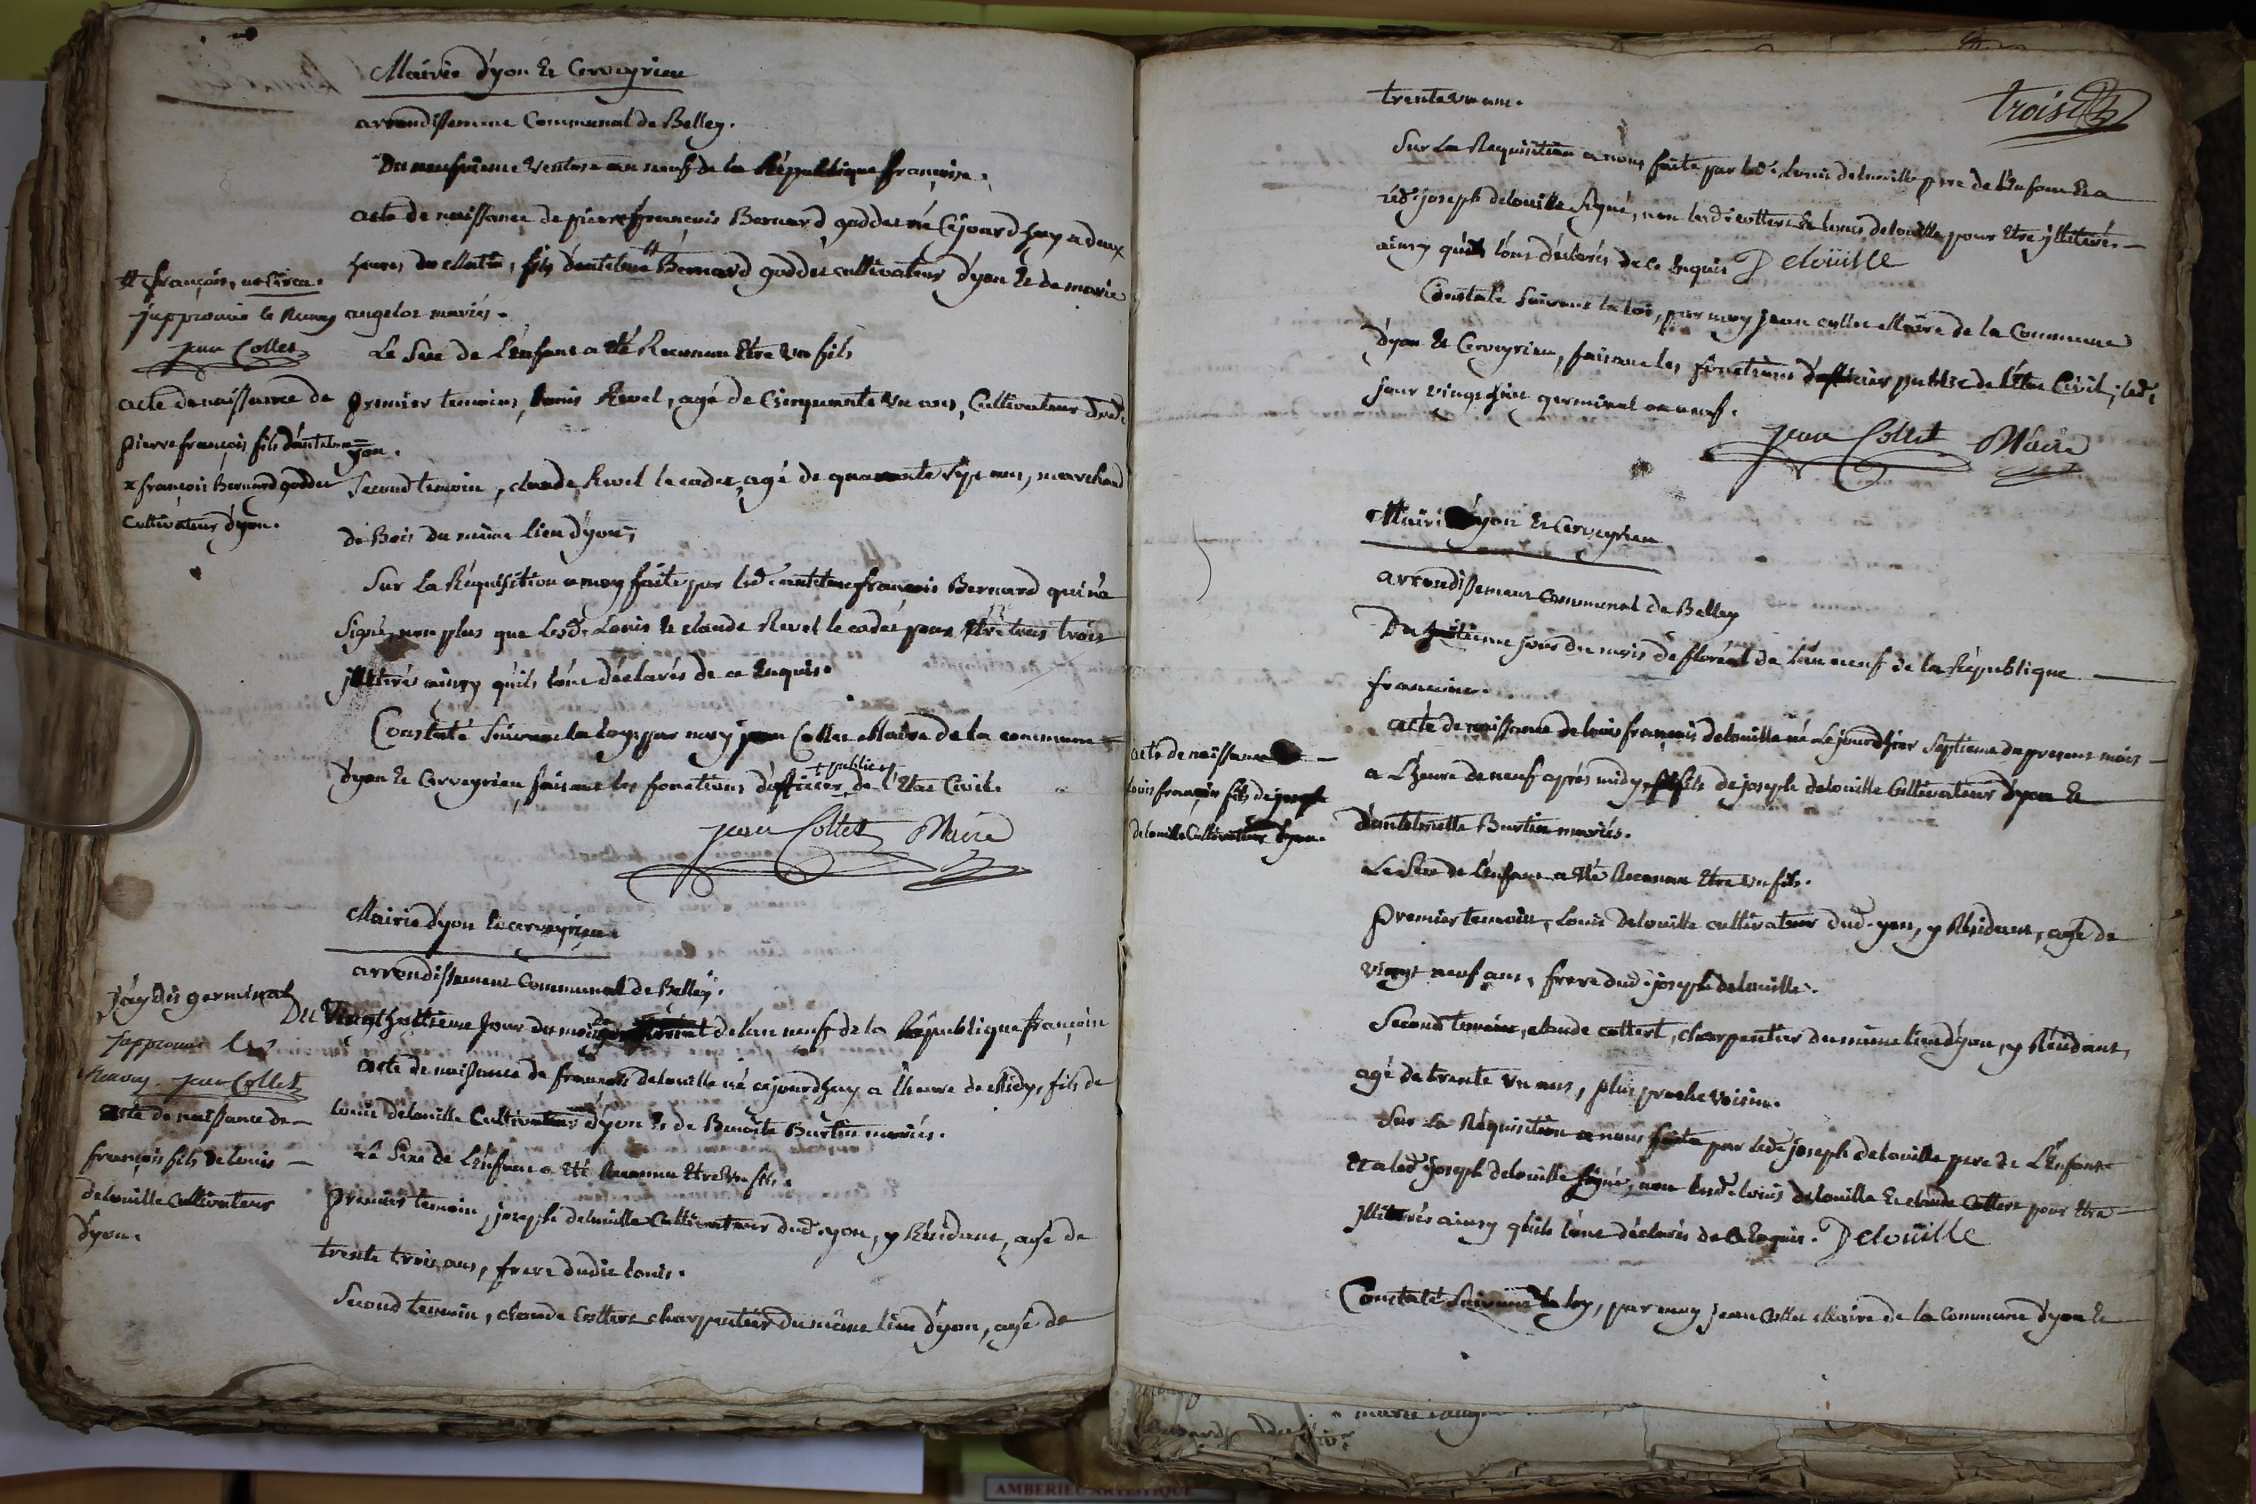 Mairie d'yon Et Cerveyrieu
arrondissement Communal de Belley.
Du neufvieme Ventose an neuf de la République françoise.
acte de naissance de pierre françois Bernard goddet né Cejourdhuy a deux
heures du Matin, fils d'antelme # Bernard goddet cultivateur d'yon Et de marie
angelot mariés.
# françois,
j'approuve le Renvoy
jean Collet
Le Sexe de L'enfant a Eté Reconnu Etre Un fils
acte de naissance de
pierre françois fils d'antelme
x françois Bernard goddet
Cultivateur d'yon.
premier temoins, Louis Revel, agé de Cinquante Un ans, Cultivateur dud.
yon.
Second temoin, claude Revel le cadet, agé de quarante Sept ans, marchand
de Bois du même lieu d'yon;
Sur la Réquisition a moy faite par led. antelme françois Bernard qui n'a
Signé, non plus que Lesd. Louis Et claude Revel le cadet pour Etre tous trois
jllitérés ainsy qu'ils l'ont déclarés de ce Enquis.
Constaté Suivant la loy, par moy jean Collet Maire de la commune
d'yon Et Cerveyrieu, faisant les fonctions d'officier + public + de l'Etat Civil.
jean Collet Maire
Mairie d'yon Et cerveyrieu.
arrondissement Communal de Belley.
germinal
japprouve le
Renvoy. jean Collet
Du Vingt huitieme Jour du mois de l'an neuf de la République françoise
acte de naissance de françois delouille né cejourdhuy a l'heure de Midy, fils de
Louis delouille Cultivateur d'yon Et de Benoite Burtin mariés.
acte de naissance de
françois fils de Louis
delouille Cultivateur
d'yon.
Le Sexe de L'enfant a Eté Reconnu Etre Un fils.
premier temoin, joseph delouille Cultivateur dud. yon, y Résidant, agé de
trente trois ans, frere dudit Louis.
Second temoin, claude Cottert charpentier du même lieu d'yon, agé de
trente Un ans.
trois
Sur La Requisition a nous faite par led. Louis delouille pere de l'Enfant Et a
led. joseph delouille Signé, non lesd. cottert Et Louis delouille pour Etre jllitérés
ainsy qu'ils l'ont déclarés de ce Enquis Delouille
Constaté Suivant la loi, par moy jean collet Maire de la Commune
d'yon Et Cerveyrieu, faisant les fonctions d'officier public de l'Etat Civil, led.
jour vingt huit germinal an neuf.
jean Collet Maire
Mairie d'yon Et Cerveyrieu
arrondissement Communal de Belley
Du huitieme jour du mois de floréal de l'an neuf de la République
françoise.
acte de naissance de louis françois delouille né Le jourdhier Septieme du present mois
a L'heure de neuf après midy, fils de joseph delouille Cultivateur d'yon Et
d'antelmette Burtin mariés.
acte de naissance
louis françois fils de joseph
delouille Cultivateur d'yon.
Le Sexe de l'enfant a Eté Reconnu Etre Un fils.
premier temoin, Louis delouille cultivateur dud. yon, y Résidant, agé de
vingt neuf ans, frere dud. joseph delouille.
Second temoin, claude cottert, charpentier du même lieu d'yon, y Résidant,
agé de trente Un ans, plus proche voisin.
Sur La Réquisition a nous faite par led. joseph delouille pere de L'Enfant
Et a led. joseph delouille Signé, non lesd. louis delouille Et claude Cottert pour Etre
jllitérés ainsy qu'ils l'ont déclarés de ce Enquis. Delouille
Constaté Suivant la loy, par moy jean Collet Maire de la Commune d'yon Et
AMBERIEU ARTISTIQUE